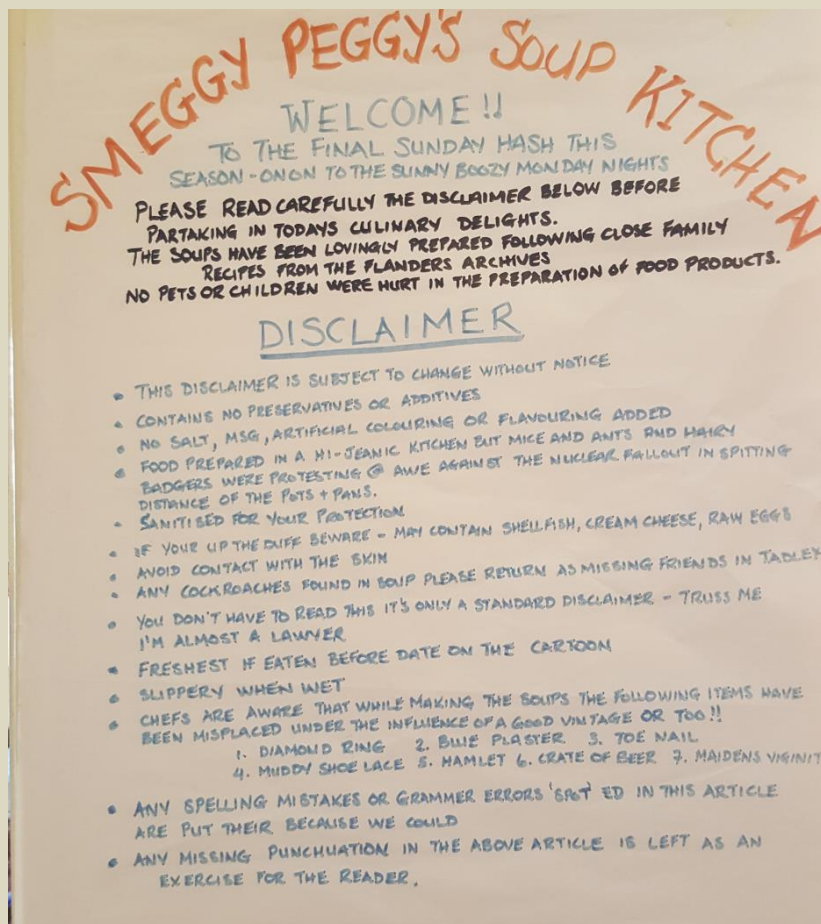 SMEGGY PEGGY'S SOUP KITCHEN
WELCOME!!
TO THE FINAL SUNDAY HASH THIS
SEASON - ONON TO THE SUNNY BOOZY MONDAY NIGHTS
PLEASE READ CAREFULLY THE DISCLAIMER BELOW BEFORE
PARTAKING IN TODAYS CULINARY DELIGHTS.
THE SOUPS HAVE BEEN LOVINGLY PREPARED FOLLOWING CLOSE FAMILY
RECIPES FROM THE FLANDERS ARCHIVES
NO PETS OR CHILDREN WERE HURT IN THE PREPARATION OF FOOD PRODUCTS.
DISCLAIMER
• THIS DISCLAIMER IS SUBJECT TO CHANGE WITHOUT NOTICE
• CONTAINS NO PRESERVATIVES OR ADDITIVES
• NO SALT, MSG, ARTIFICIAL COLOURING OR FLAVOURING ADDED
• FOOD PREPARED IN A HI-JEANIC KITCHEN BUT MICE AND ANTS AND HAIRY
BADGERS WERE PROTESTING @ AWE AGAINST THE NUCLEAR FALLOUT IN SPITTING
DISTANCE OF THE POTS + PANS.
• SANITISED FOR YOUR PROTECTION
• IF YOUR UP THE DUFF BEWARE - MAY CONTAIN SHELLFISH, CREAM CHEESE, RAW EGGS
• AVOID CONTACT WITH THE SKIN
• ANY COCKROACHES FOUND IN SOUP PLEASE RETURN AS MISSING FRIENDS IN TADLEY
• YOU DON'T HAVE TO READ THIS IT'S ONLY A STANDARD DISCLAIMER - TRUSS ME
I'M ALMOST A LAWYER
• FRESHEST IF EATEN BEFORE DATE ON THE CARTOON
• SLIPPERY WHEN WET
• CHEFS ARE AWARE THAT WHILE MAKING THE SOUPS THE FOLLOWING ITEMS HAVE
BEEN MISPLACED UNDER THE INFLUENCE OF A GOOD VINTAGE OR TOO!!
1. DIAMOND RING 2. BLUE PLASTER 3. TOE NAIL
4. MUDDY SHOE LACE 5. HAMLET 6. CRATE OF BEER 7. MAIDENS VIGINIT
• ANY SPELLING MISTAKES OR GRAMMER ERRORS 'SPOT' ED IN THIS ARTICLE
ARE PUT THEIR BECAUSE WE COULD
• ANY MISSING PUNCHUATION IN THE ABOVE ARTICLE IS LEFT AS AN
EXERCISE FOR THE READER.